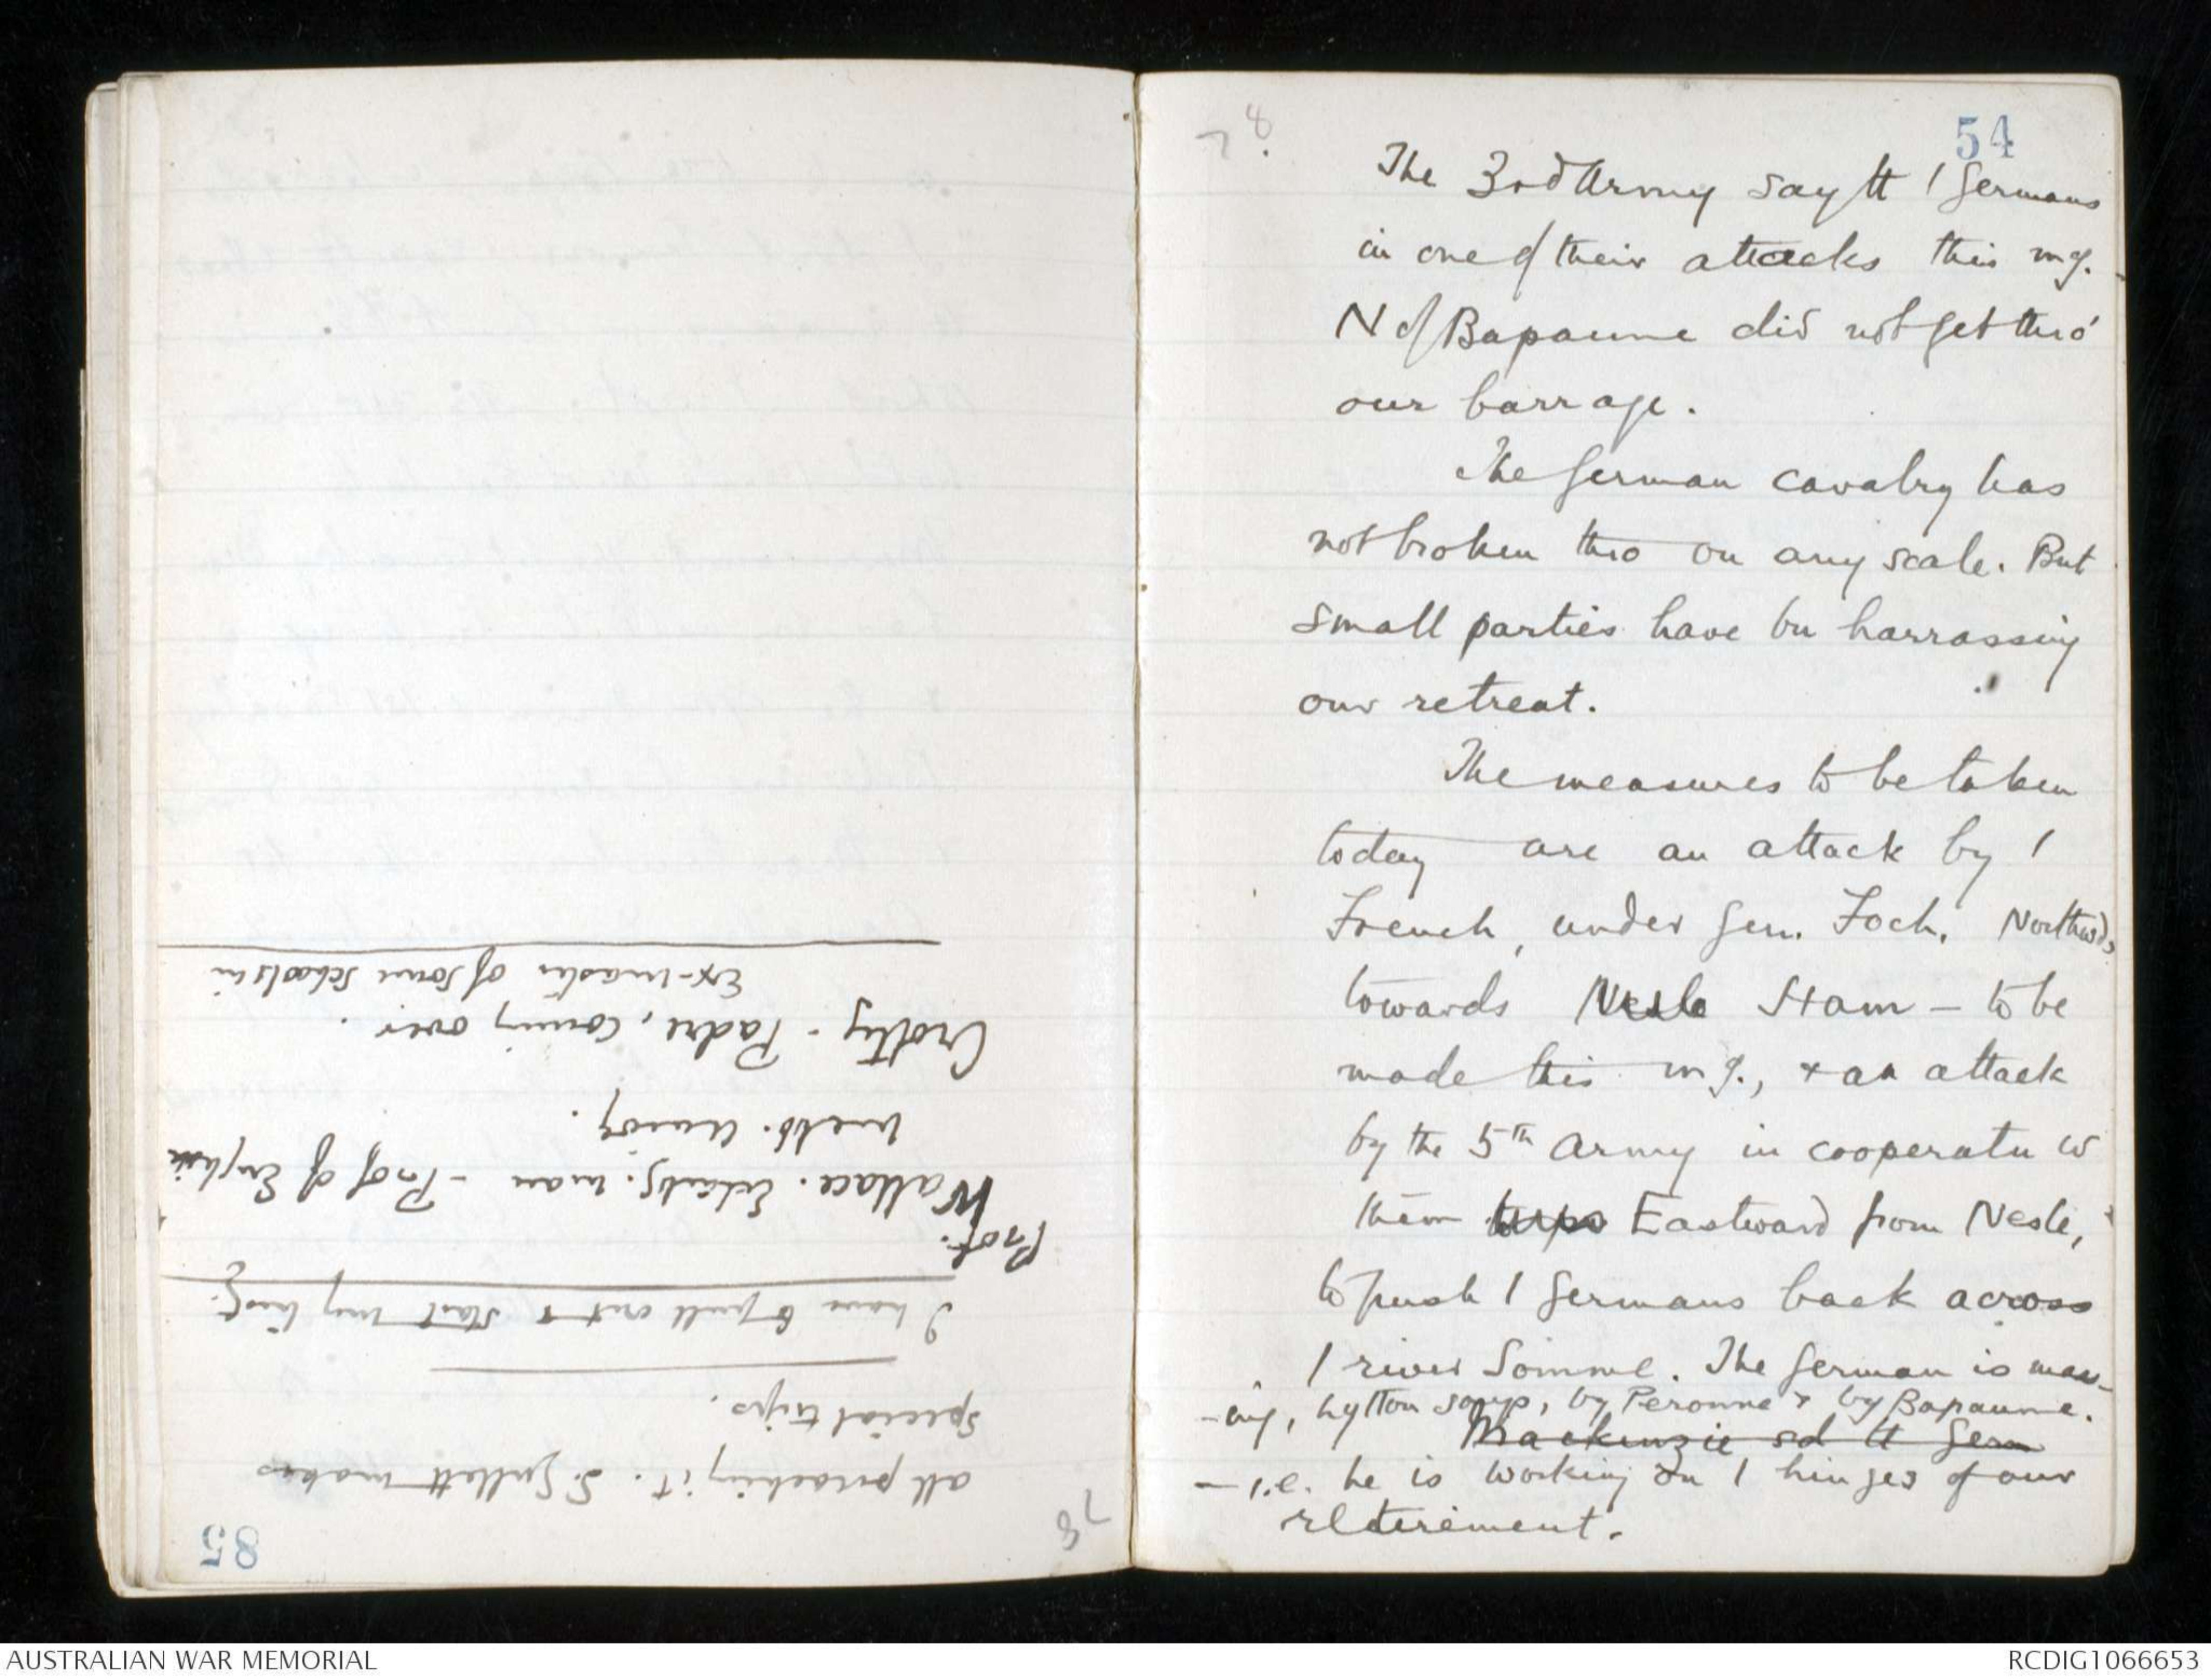 85
78
all preaching it. S. Gullett makes
special trips.
I have to pull out & start my hist.
Prof.
Wallace. Educatg. man - Prof of English
Melb. Univy.
Crotty - Padre, coming over.
Ex-master of some schools in
54
78.
The 3rd Army say tt / Germans
in one of their attacks this mg.
N of Bapaume did not get thro'
our barrage.
The German cavalry has
not broken thro on any scale. But
small parties have bn harrassing
our retreat.
The measures to be taken
today are an attack by /
French, under Gen. Foch. Northwds
towards Nesle Ham - to be
made this mg., & an attack
by the 5th Army in cooperatn w
them Eastward from Nesle,
to push / Germans back across
/ river Somme. The German is mass-
-ing, Hylton says, by Peronne & by Bapaume.
Mackenzie sd tt Germ
- i.e. he is working on / hinges of our
retirement.
AUSTRALIAN WAR MEMORIAL
RCDIG1066653